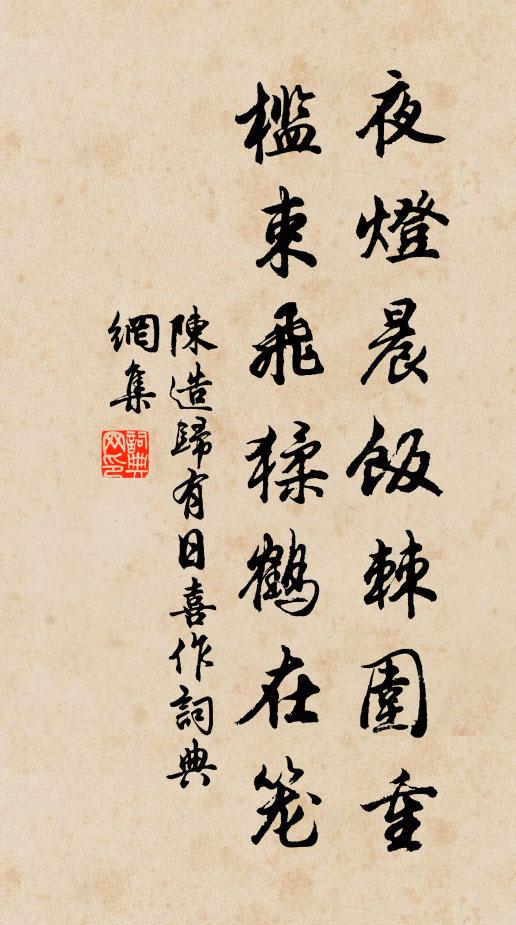 夜燈晨飯棘圍重
檻束飛猱鶴在籠
陳造歸有日喜作詞典
網集
詞典
网印